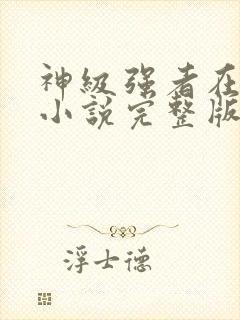 神級强者在
小說完整版
浮士德